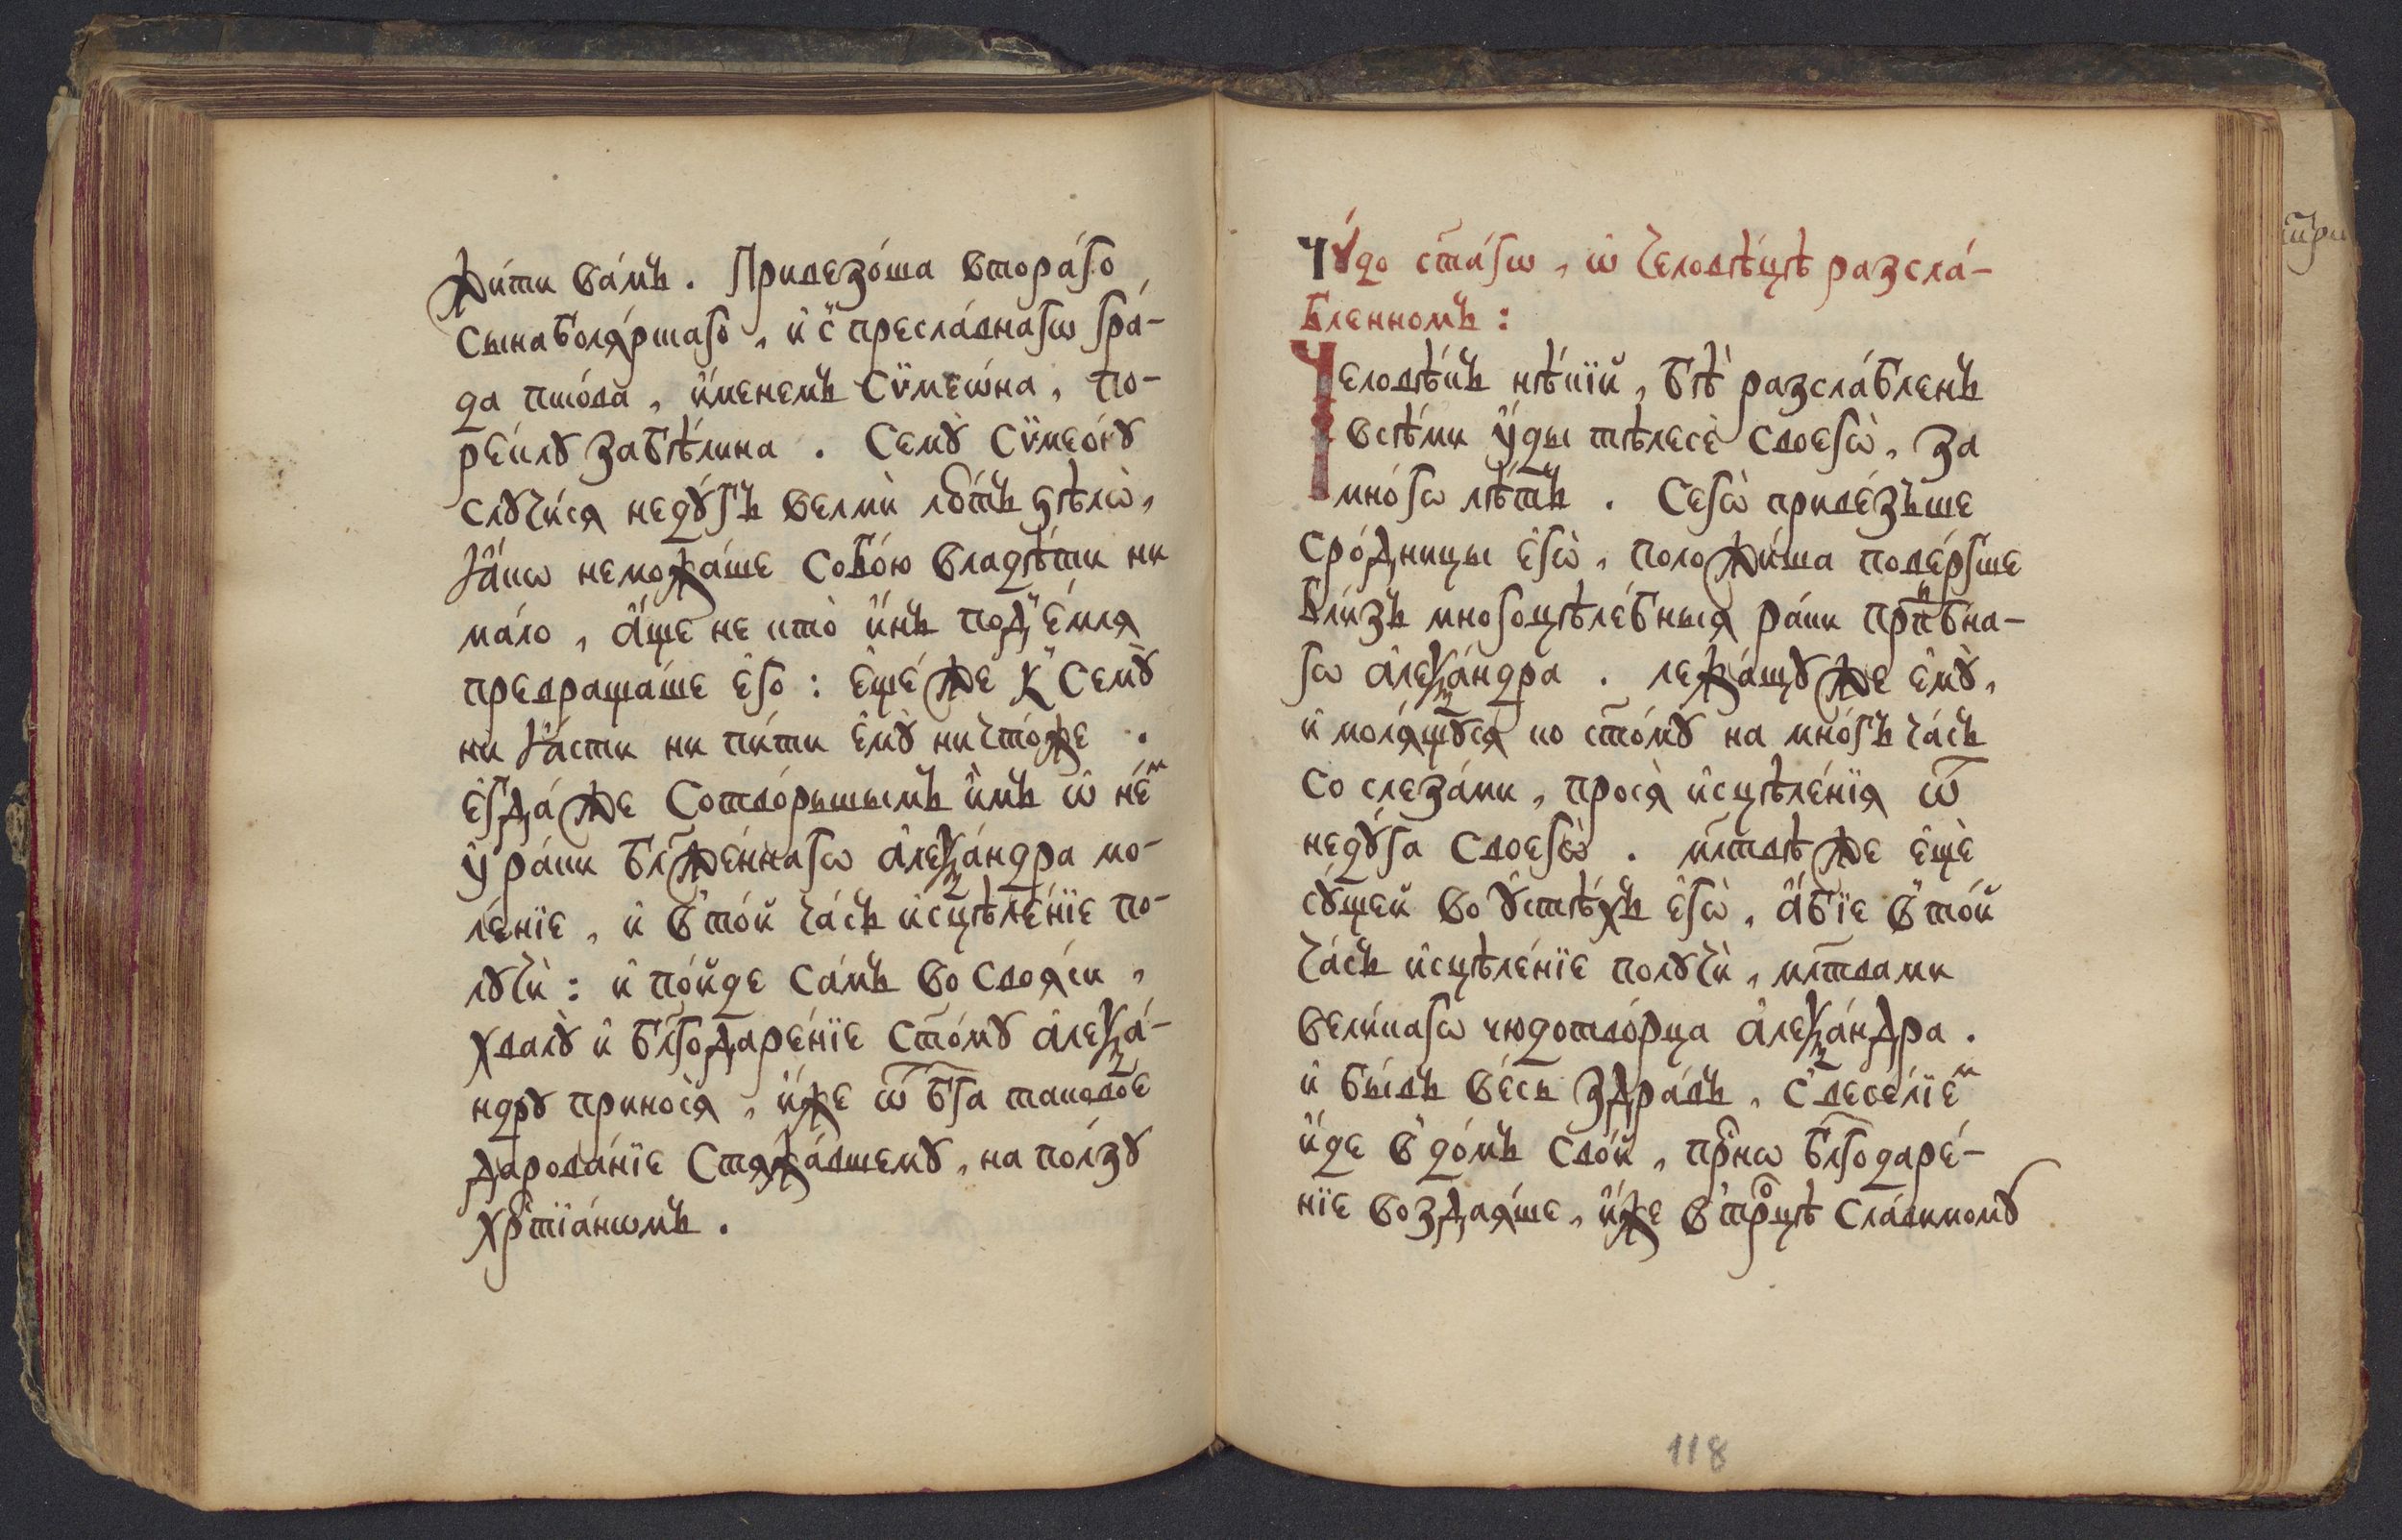 жи́ти ва́мъ. Приведо́ша втора́го
сына боля́рскаго, и҆ с̾ пресла́внагѡ гра́-
да пско́ва, и҆́менемъ Сѷмеѡ́на, по-
ре́клꙋ забѣ́лина. Семꙋ̀ Сѷмео́нꙋ
слꙋчи́ся недꙋ́гъ велмѝ лю́тъ ѕѣлѡ̀,
ꙗ҆́кѡ неможа́ше собо́ю владѣ́ти ни
ма́ло, а҆́ще не кто̀ и҆́нъ под̾е́мля
превраща́ше є҆го̀: є҆ще́ же к̾ семꙋ̀
ни ꙗ҆́сти ни пи́ти є҆мꙋ̀ ничто́же.
є҆гда́ же сотво́рьшымъ и҆̀мъ ѡ҆ не́ᵐ
у҆ ра́ки бл҃же́ннагѡ а҆леѯа́ндра мо-
ле́нїе, и҆ в̾то́й ча́съ и҆сцѣле́нїе по-
лꙋчѝ: и҆ по́йде са́мъ во своя́си,
хвалꙋ̀ и҆ бл҃годаре́нїе ст҃о́мꙋ а҆леѯа́-
ндрꙋ принося̀, и҆́же ѿ бг҃а таково́е
дарова́нїе стяжа́вшемꙋ, на по́лзꙋ
хрⷭ҇тїа́нѡмъ.
Чꙋ́до ст҃а́гѡ, ѡ҆ человѣ́цѣ разсла́-
бленномъ:
Человѣ́къ нѣ́кїй, бѣ̀ разсла́бленъ
всѣ́ми у҆́ды тѣлесѐ своегѡ̀, за
мно́гѡ лѣ́тъ. Сегѡ̀ приве́зъше
сро́дницы є҆гѡ̀, положи́ша пове́ргше
бли́зъ многоцѣле́бныя ра́ки прпⷣбна-
гѡ а҆леѯа́ндра. лежа́щꙋ же є҆мꙋ̀,
и҆ моля́щꙋся ко ст҃о́мꙋ на мно́гъ ча́съ
со слеза́ми, прося̀ и҆сцѣле́нїя ѿ
недꙋ́га своегѡ̀. мл҃твѣ же є҆щѐ
сꙋ́щей во ᲂу҆стѣ́хъ є҆гѡ̀, а҆́бїе в̾то́й
ча́съ и҆сцѣле́нїе полꙋчѝ, мл҃твами
вели́кагѡ чюдотво́рца а҆леѯа́ндра.
и҆ бы́въ ве́сь здра́въ, с̾ весе́лїеᵐ
и҆́де в̾ до́мъ сво́й, прⷭ҇нѡ бл҃годаре́-
нїе воздая́ше, и҆́же в̾ трⷪ҇цѣ сла́вимомꙋ
118